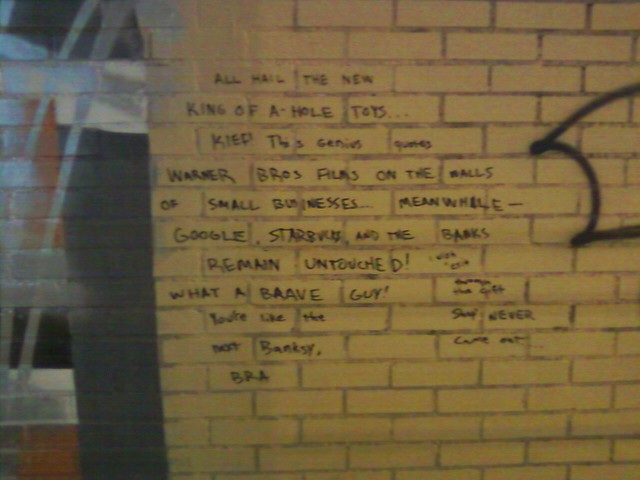 ALL HAIL THE NEW
KING OF A-HOLE TOYS...
KIEF! This genius quotes
WARNER BROS FILMS ON THE WALLS
OF SMALL BUSINESSES... MEANWHALE-
GOOGLE, STARBUCKS, AND THE BANKS
REMAIN UNTOUCHED!
WHAT A BRAVE GUY!
You're like the
next Banksy,
BRA
the Gift
Shop NEVER
came out...